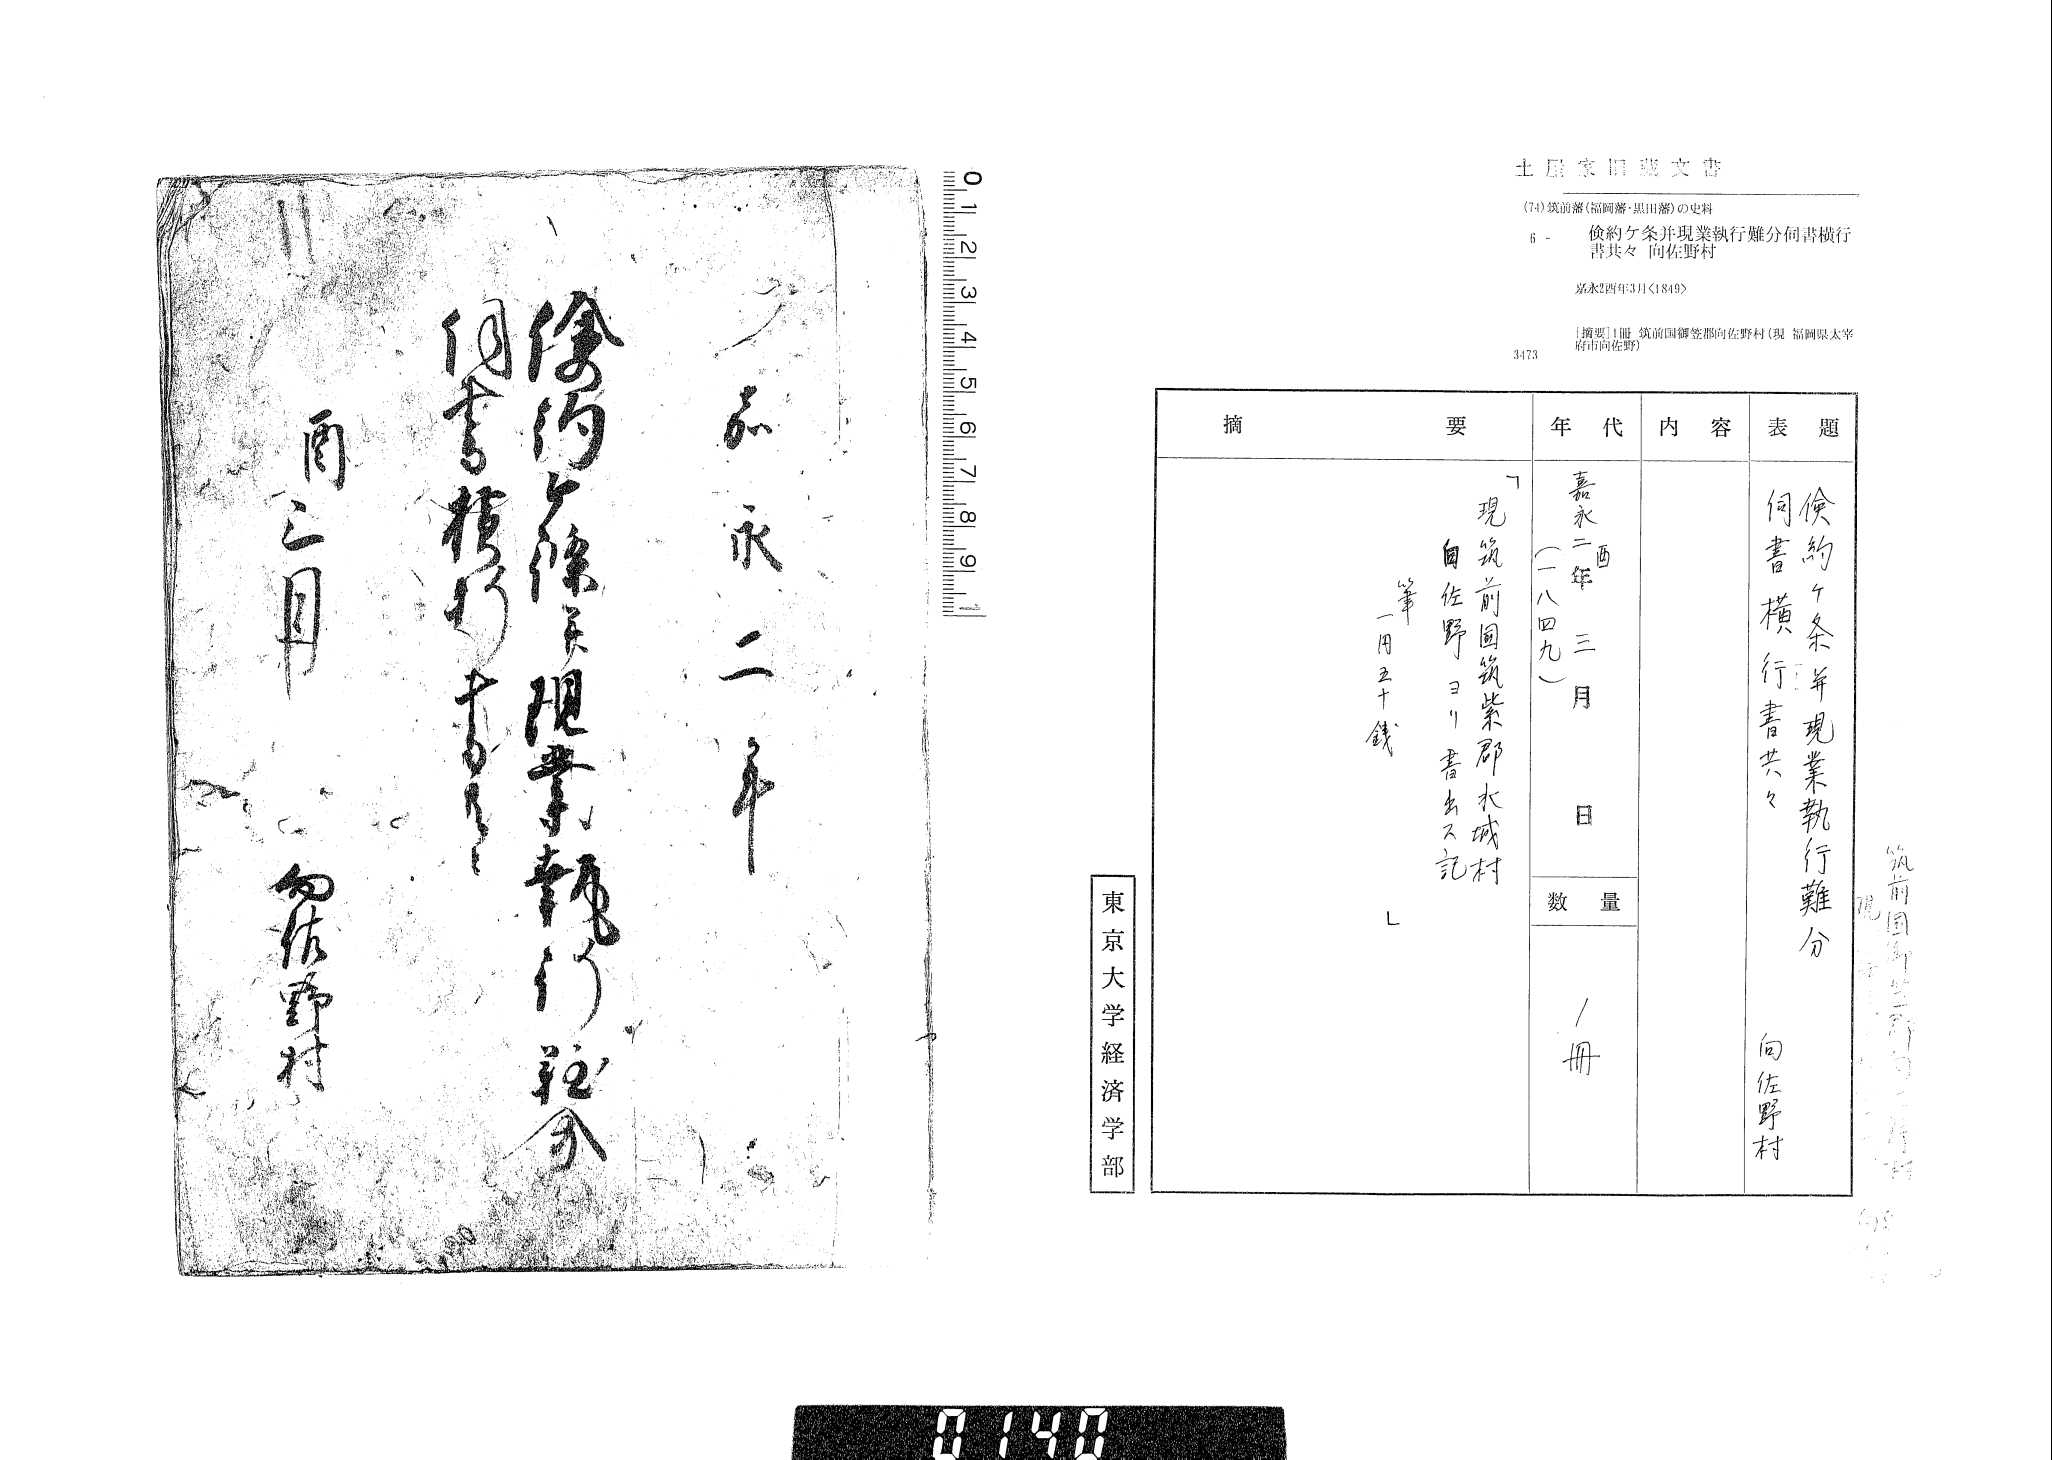 土屋家旧蔵文書
(74)筑前藩(福岡藩・黒田藩)の史料
6 -
倹約ケ条并現業執行難分伺書横行
書共々 向佐野村
嘉永2酉年3月<1849>
[摘要]1冊 筑前国御笠郡向佐野村(現 福岡県太宰
府市向佐野)
3473
表題
倹約ケ条并現業執行難分
伺書横行書共々 向佐野村
内容
年代
嘉永二酉年三月 日
(一八四九)
数量
1冊
摘要
「現筑前国筑紫郡水城村
向佐野ヨリ書出ス記
筆
一円五十銭
」
東京大学経済学部
筑前国御笠郡向佐野村
現
0 1 2 3 4 5 6 7 8 9 1
嘉永二年
倹約ケ條并現業執行難分
伺書横行書共々
酉三月
向佐野村
0140